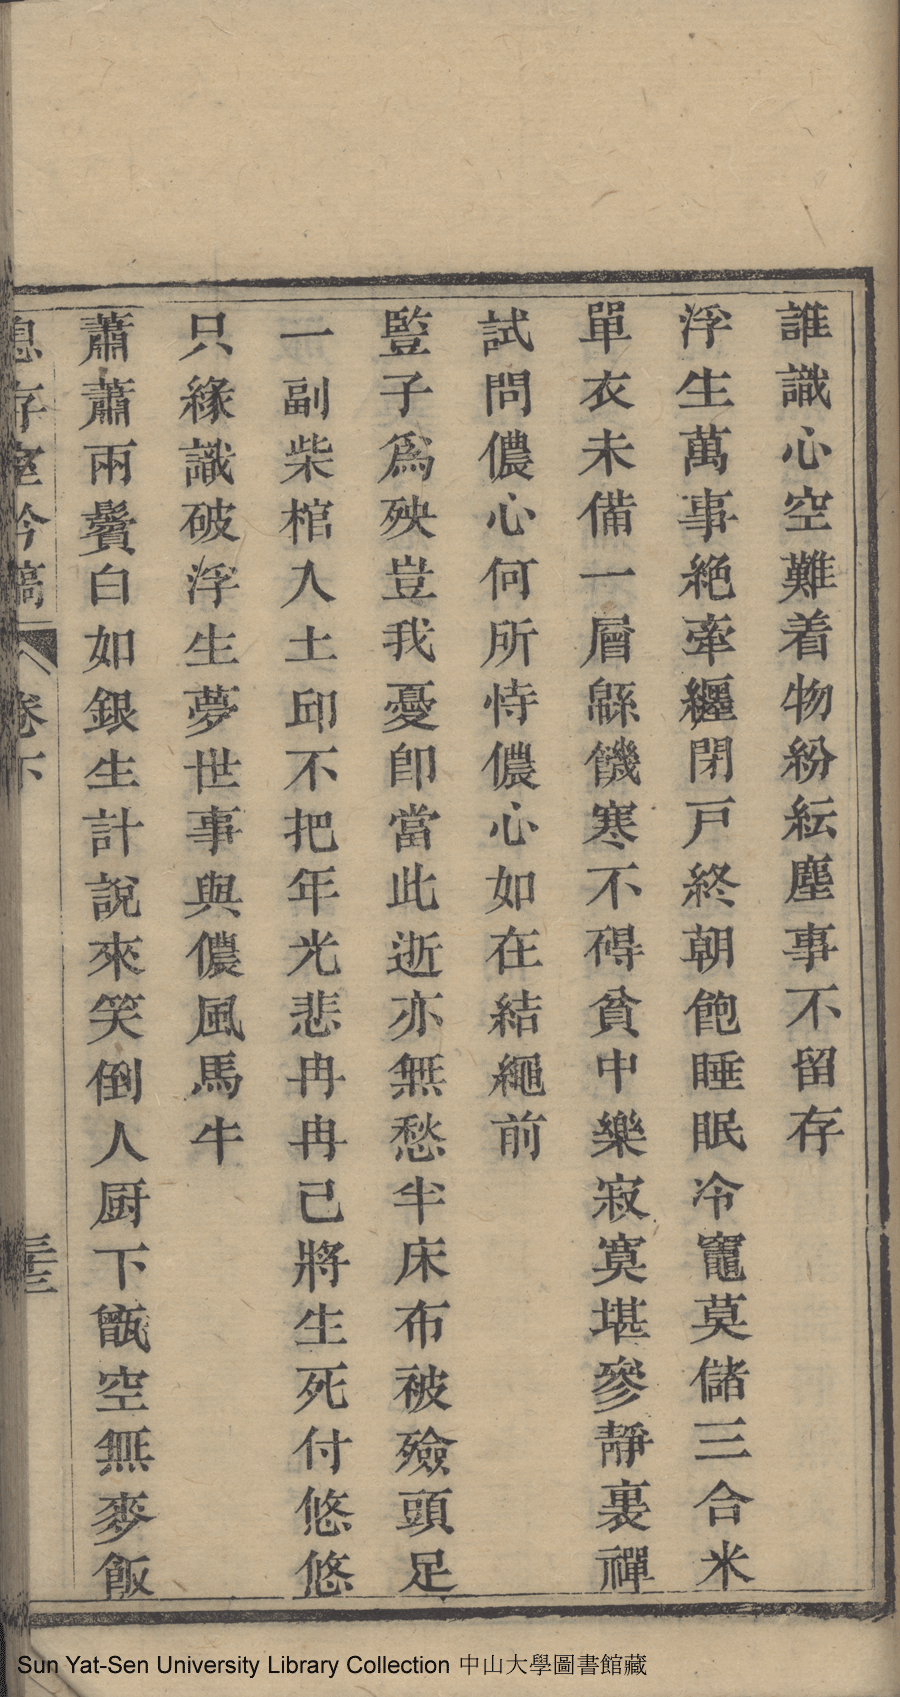 誰識心空難着物紛紜塵事不留存
浮生萬事絶牽纒閉戸終朝飽睡眠冷竈莫儲三合米
單衣未備一層緜饑寒不碍貧中樂寂寞堪參靜裏禪
試問儂心何所恃儂心如在結繩前
豎子爲殃豈我憂卽當此逝亦無愁半床布被殮頭足
一副柴棺入土邱不把年光悲冉冉已將生死付悠悠
只緣識破浮生夢世事與儂風馬牛
蕭蕭兩鬢白如銀生計說來笑倒人厨下甑空無麥飯
息存室吟稿 卷下
Sun Yat-Sen University Library Collection 中山大學圖書館藏